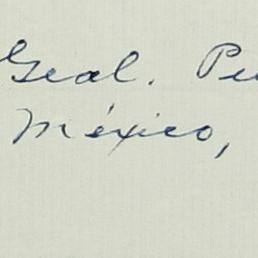 Geal. Pe
México,